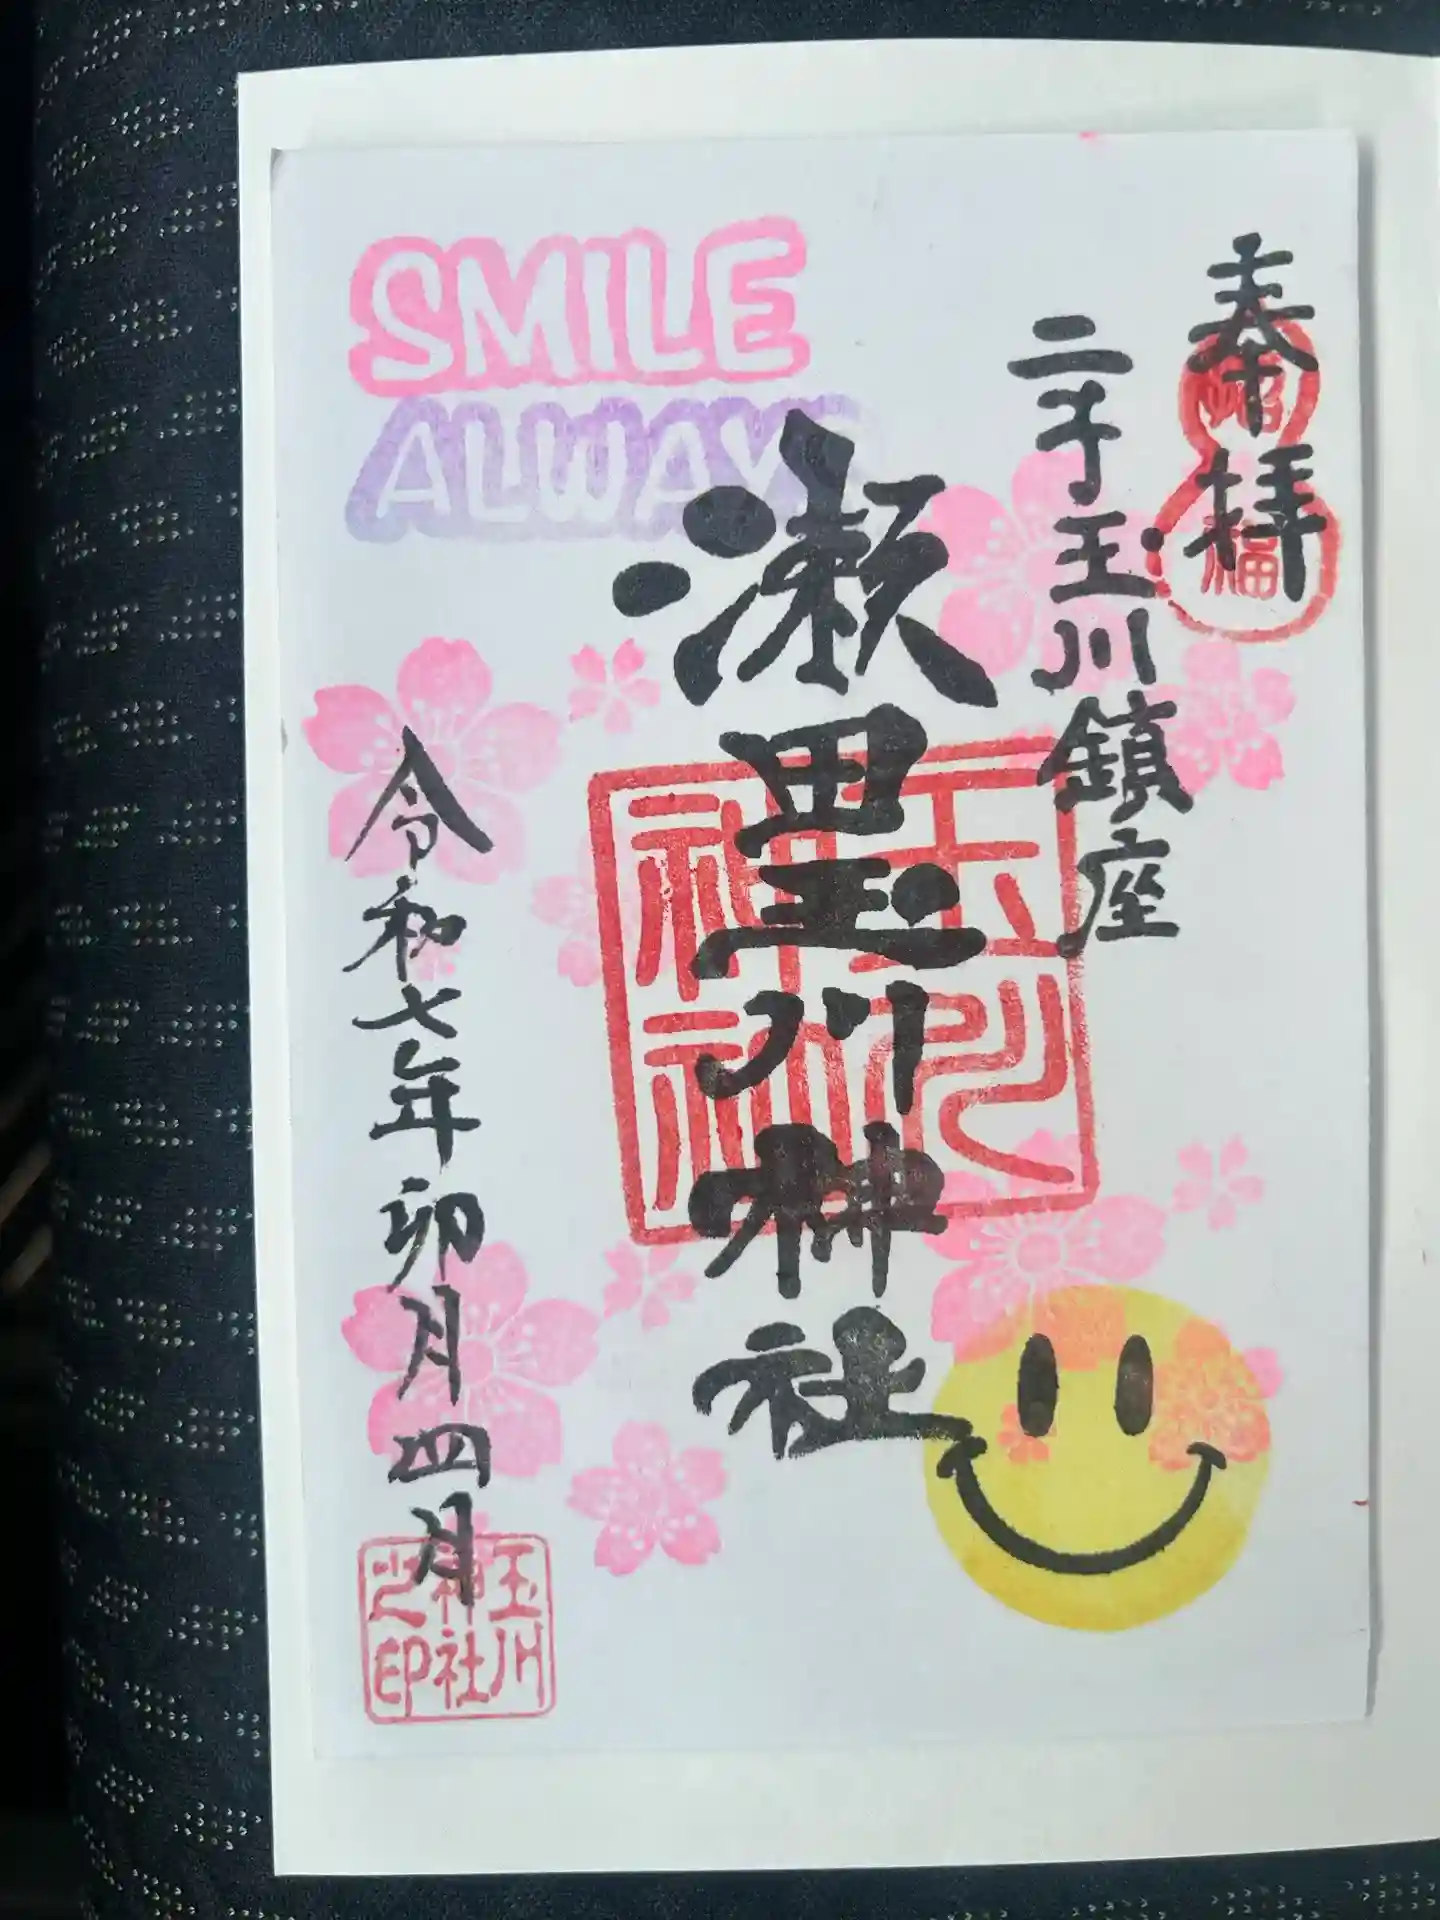 SMILE
ALWAYS
奉拝
二子玉川鎮座
瀬田玉川神社
令和七年卯月四月
招福
玉川神社
玉川神社之印